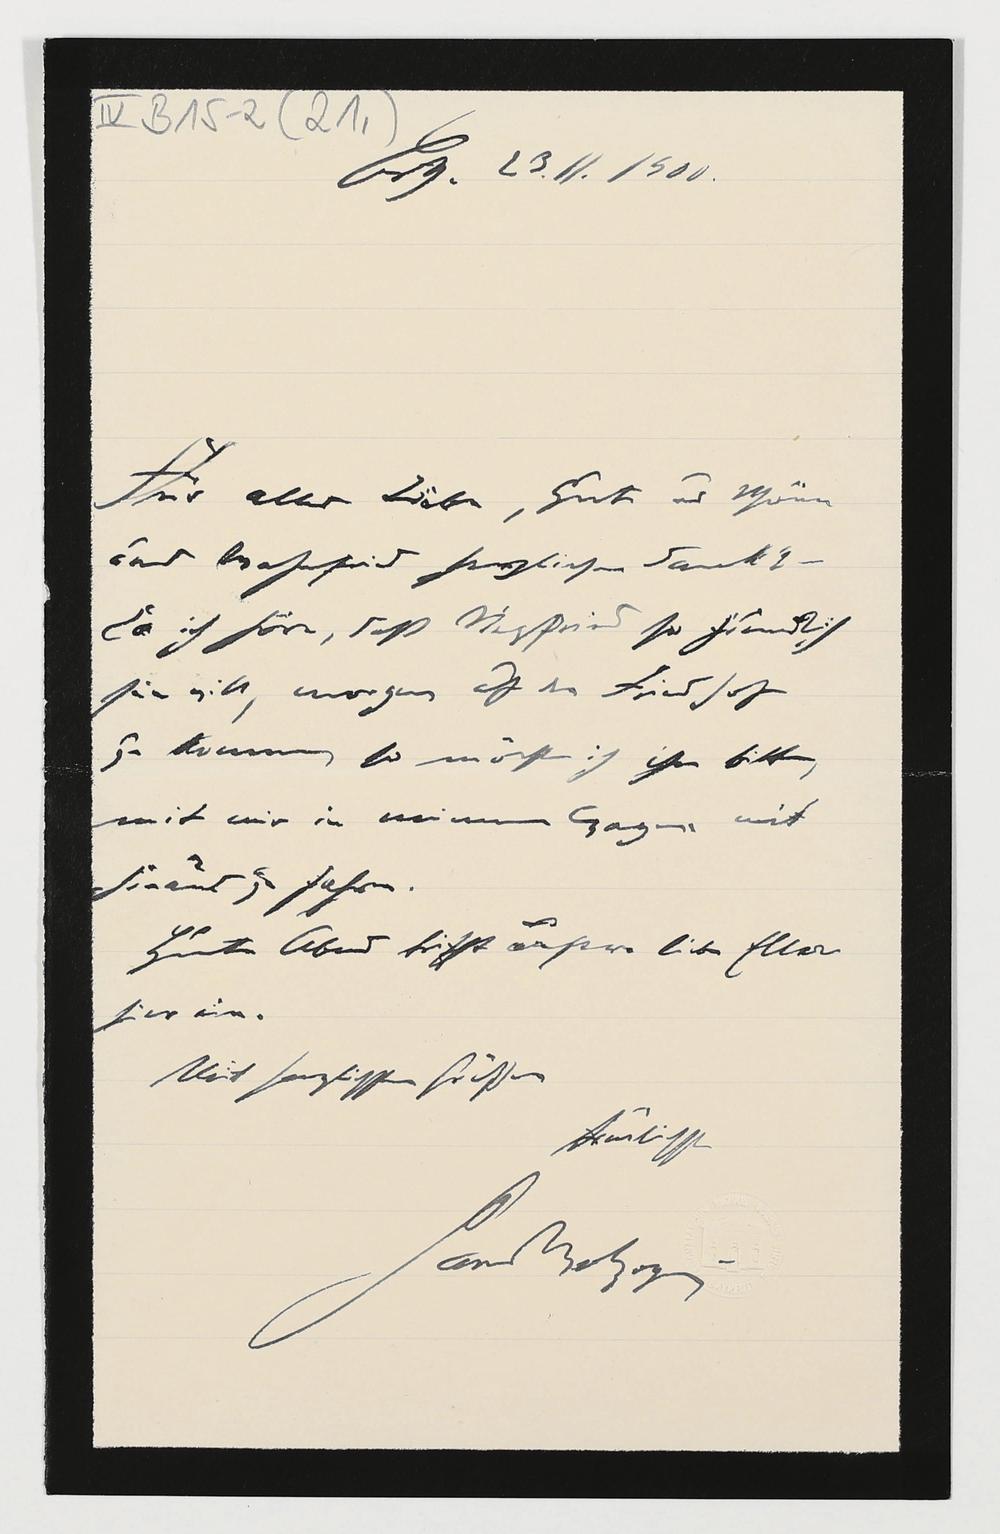 IV B 15-2 (21,)
Bth. 23.11.1900.
Für alles Liebe, Gute und Schöne
aus Wahnfried herzlichen Dank! –
Da ich höre, daß Siegfried so freundlich
sein will, morgen auf den Friedhof
zu kommen, so möchte ich ihn bitten,
mit mir in meinem Wagen mit
hinaus zu fahren.
Heute Abend trifft unsere liebe Ellen
hier ein.
Mit herzlichen Grüßen
treulichst
Hans Wolzogen